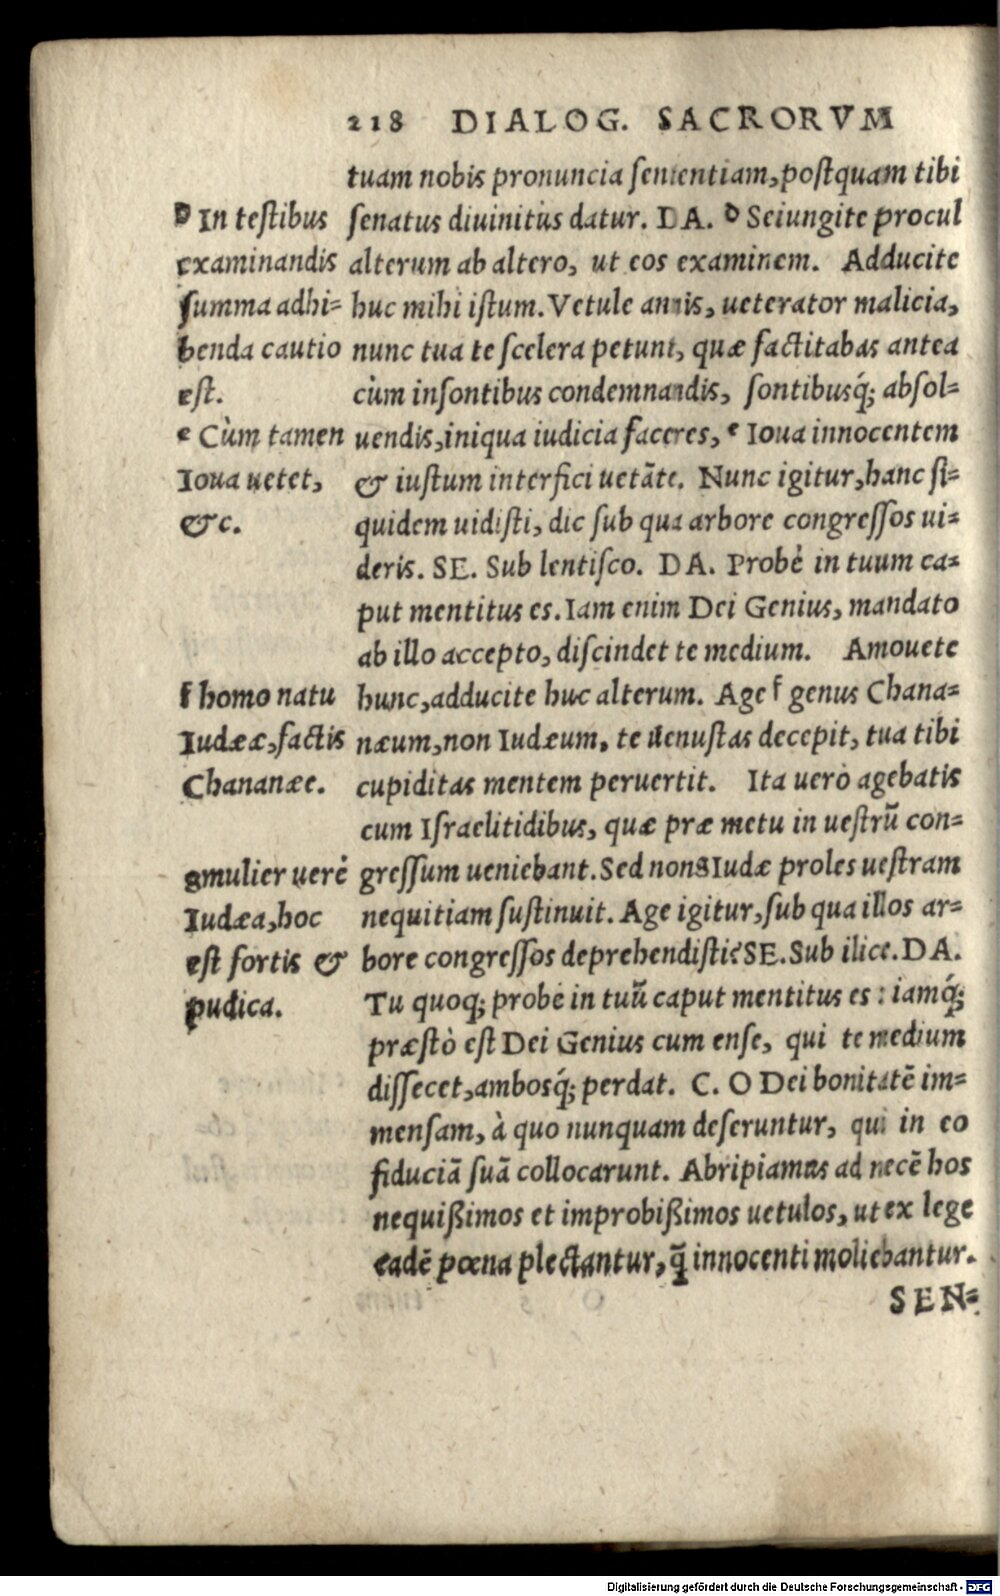 218 DIALOG. SACRORVM
tuam nobis pronuncia sententiam, postquam tibi
senatus diuinitùs datur. DA. ᴰ Seiungite procul
alterum ab altero, ut eos examinem. Adducite
huc mihi istum. Vetule annis, ueterator malicia,
nunc tua te scelera petunt, quæ factitabas antea
cùm insontibus condemnandis, sontibusq́; absol=
uendis, iniqua iudicia faceres, ᵉ Ioua innocentem
& iustum interfici uetāte. Nunc igitur, hanc si=
quidem uidisti, dic sub qua arbore congressos ui=
deris. SE. Sub lentisco. DA. Probè in tuum ca=
put mentitus es. Iam enim Dei Genius, mandato
ab illo accepto, discindet te medium. Amouete
hunc, adducite huc alterum. Age ᶠ genus Chana=
næum, non Iudæum, te uenustas decepit, tua tibi
cupiditas mentem peruertit. Ita uerò agebatis
cum Israelitidibus, quæ præ metu in uestrū con=
gressum ueniebant. Sed non ᵍ Iudæ proles uestram
nequitiam sustinuit. Age igitur, sub qua illos ar=
bore congressos deprehendisti? SE. Sub ilice. DA.
Tu quoq; probè in tuū caput mentitus es: iamq́;
præstò est Dei Genius cum ense, qui te medium
dissecet, ambosq́; perdat. C. O Dei bonitatē im=
mensam, à quo nunquam deseruntur, qui in eo
fiduciā suā collocarunt. Abripiamus ad necē hos
nequißimos et improbißimos uetulos, ut ex lege
eadē pœna plectantur, q̄ innocenti moliebantur.
SEN=
ᴰ In testibus
examinandis
summa adhi=
benda cautio
est.
ᵉ Cùm tamen
Ioua uetet,
&c.
ᶠ homo natu
Iudææ, factis
Chananæe.
ᵍ mulier uerè
Iudæa, hoc
est fortis &
pudica.
Digitalisierung gefördert durch die Deutsche Forschungsgemeinschaft - DFG